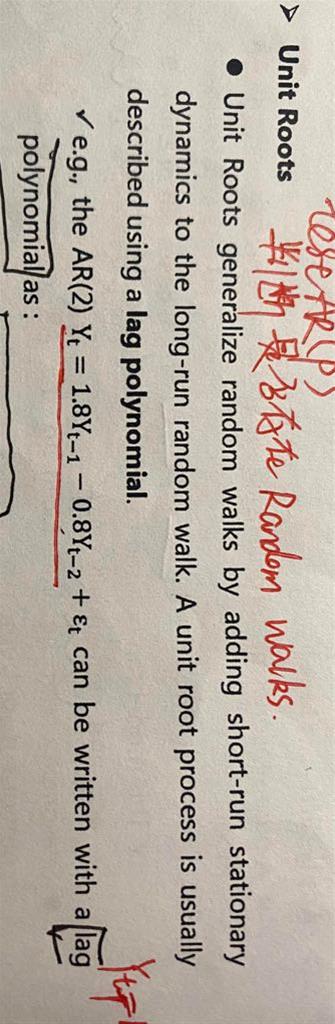 test AR(P)
判断是否存在 Random walks.
➢ Unit Roots
● Unit Roots generalize random walks by adding short-run stationary
dynamics to the long-run random walk. A unit root process is usually
described using a lag polynomial.
✓ e.g., the AR(2) Yₜ = 1.8Yₜ₋₁ − 0.8Yₜ₋₂ + εₜ can be written with a lag
polynomial as :